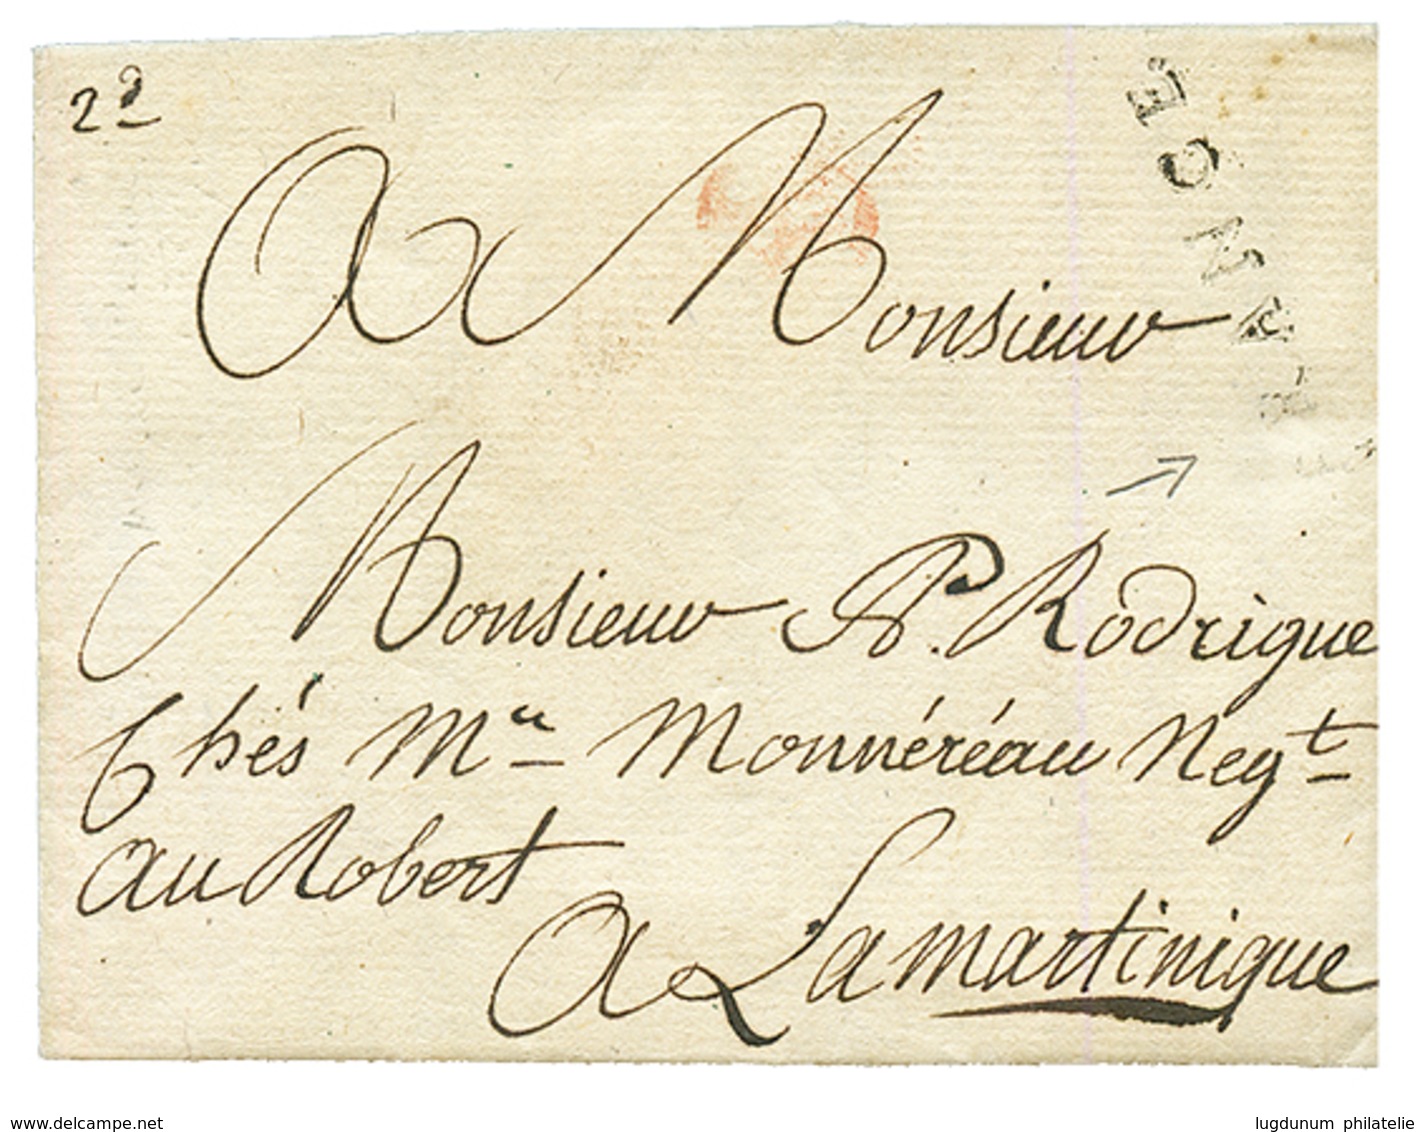 2d
FRANCE
A Monsieur
Monsieur A. Rodrigue
Chés Mr Monnéréau Negt
au Robert
A Lamartinique
www.delcampe.net
lugdunum philatelie